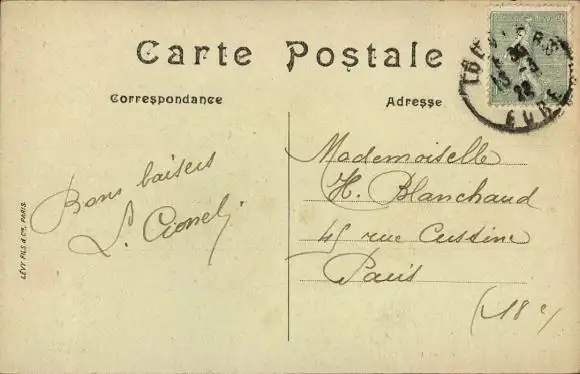 Carte Postale
Correspondance
Adresse
Bons baisers
Mademoiselle
H. Blanchaud
45 rue Cussine
Paris
(18e)
LÉVY FILS & Cie, PARIS.
EURE